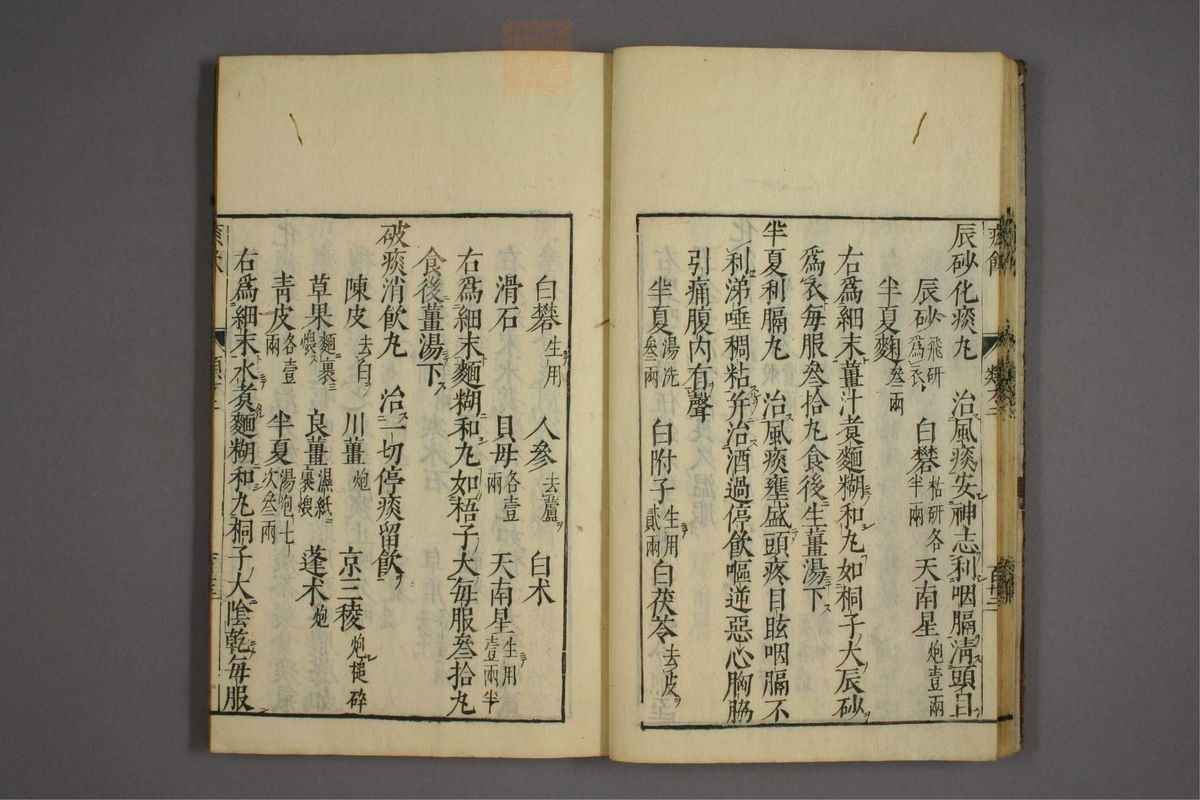 辰砂化痰丸　治風痰安神志利咽膈淸頭目
辰砂飛研爲衣　白礬枯研各半兩　天南星炮壹兩
半夏麴叁兩
右爲細末薑汁煑麵糊和丸如桐子大辰砂
爲衣每服叁拾丸食後生薑湯下
半夏利膈丸　治風痰壅盛頭疼目眩咽膈不
利涕唾稠粘并治酒過停飮嘔逆惡心胸脇
引痛腹内有聲
半夏湯洗叁兩　白附子生用貳兩　白茯苓去皮
白礬生用　人參去蘆　白术
滑石　貝母各壹兩　天南星生用壹兩半
右爲細末麵糊和丸如梧子大每服叁拾丸
食後薑湯下
破痰消飮丸　治一切停痰留飮
陳皮去白　川薑炮　京三稜炮搥碎
草果麵裹煨　良薑濕紙裹煨　蓬术炮
靑皮各壹兩　半夏湯炮七次叁兩
右爲細末水煑麵糊和丸桐子大陰乾每服